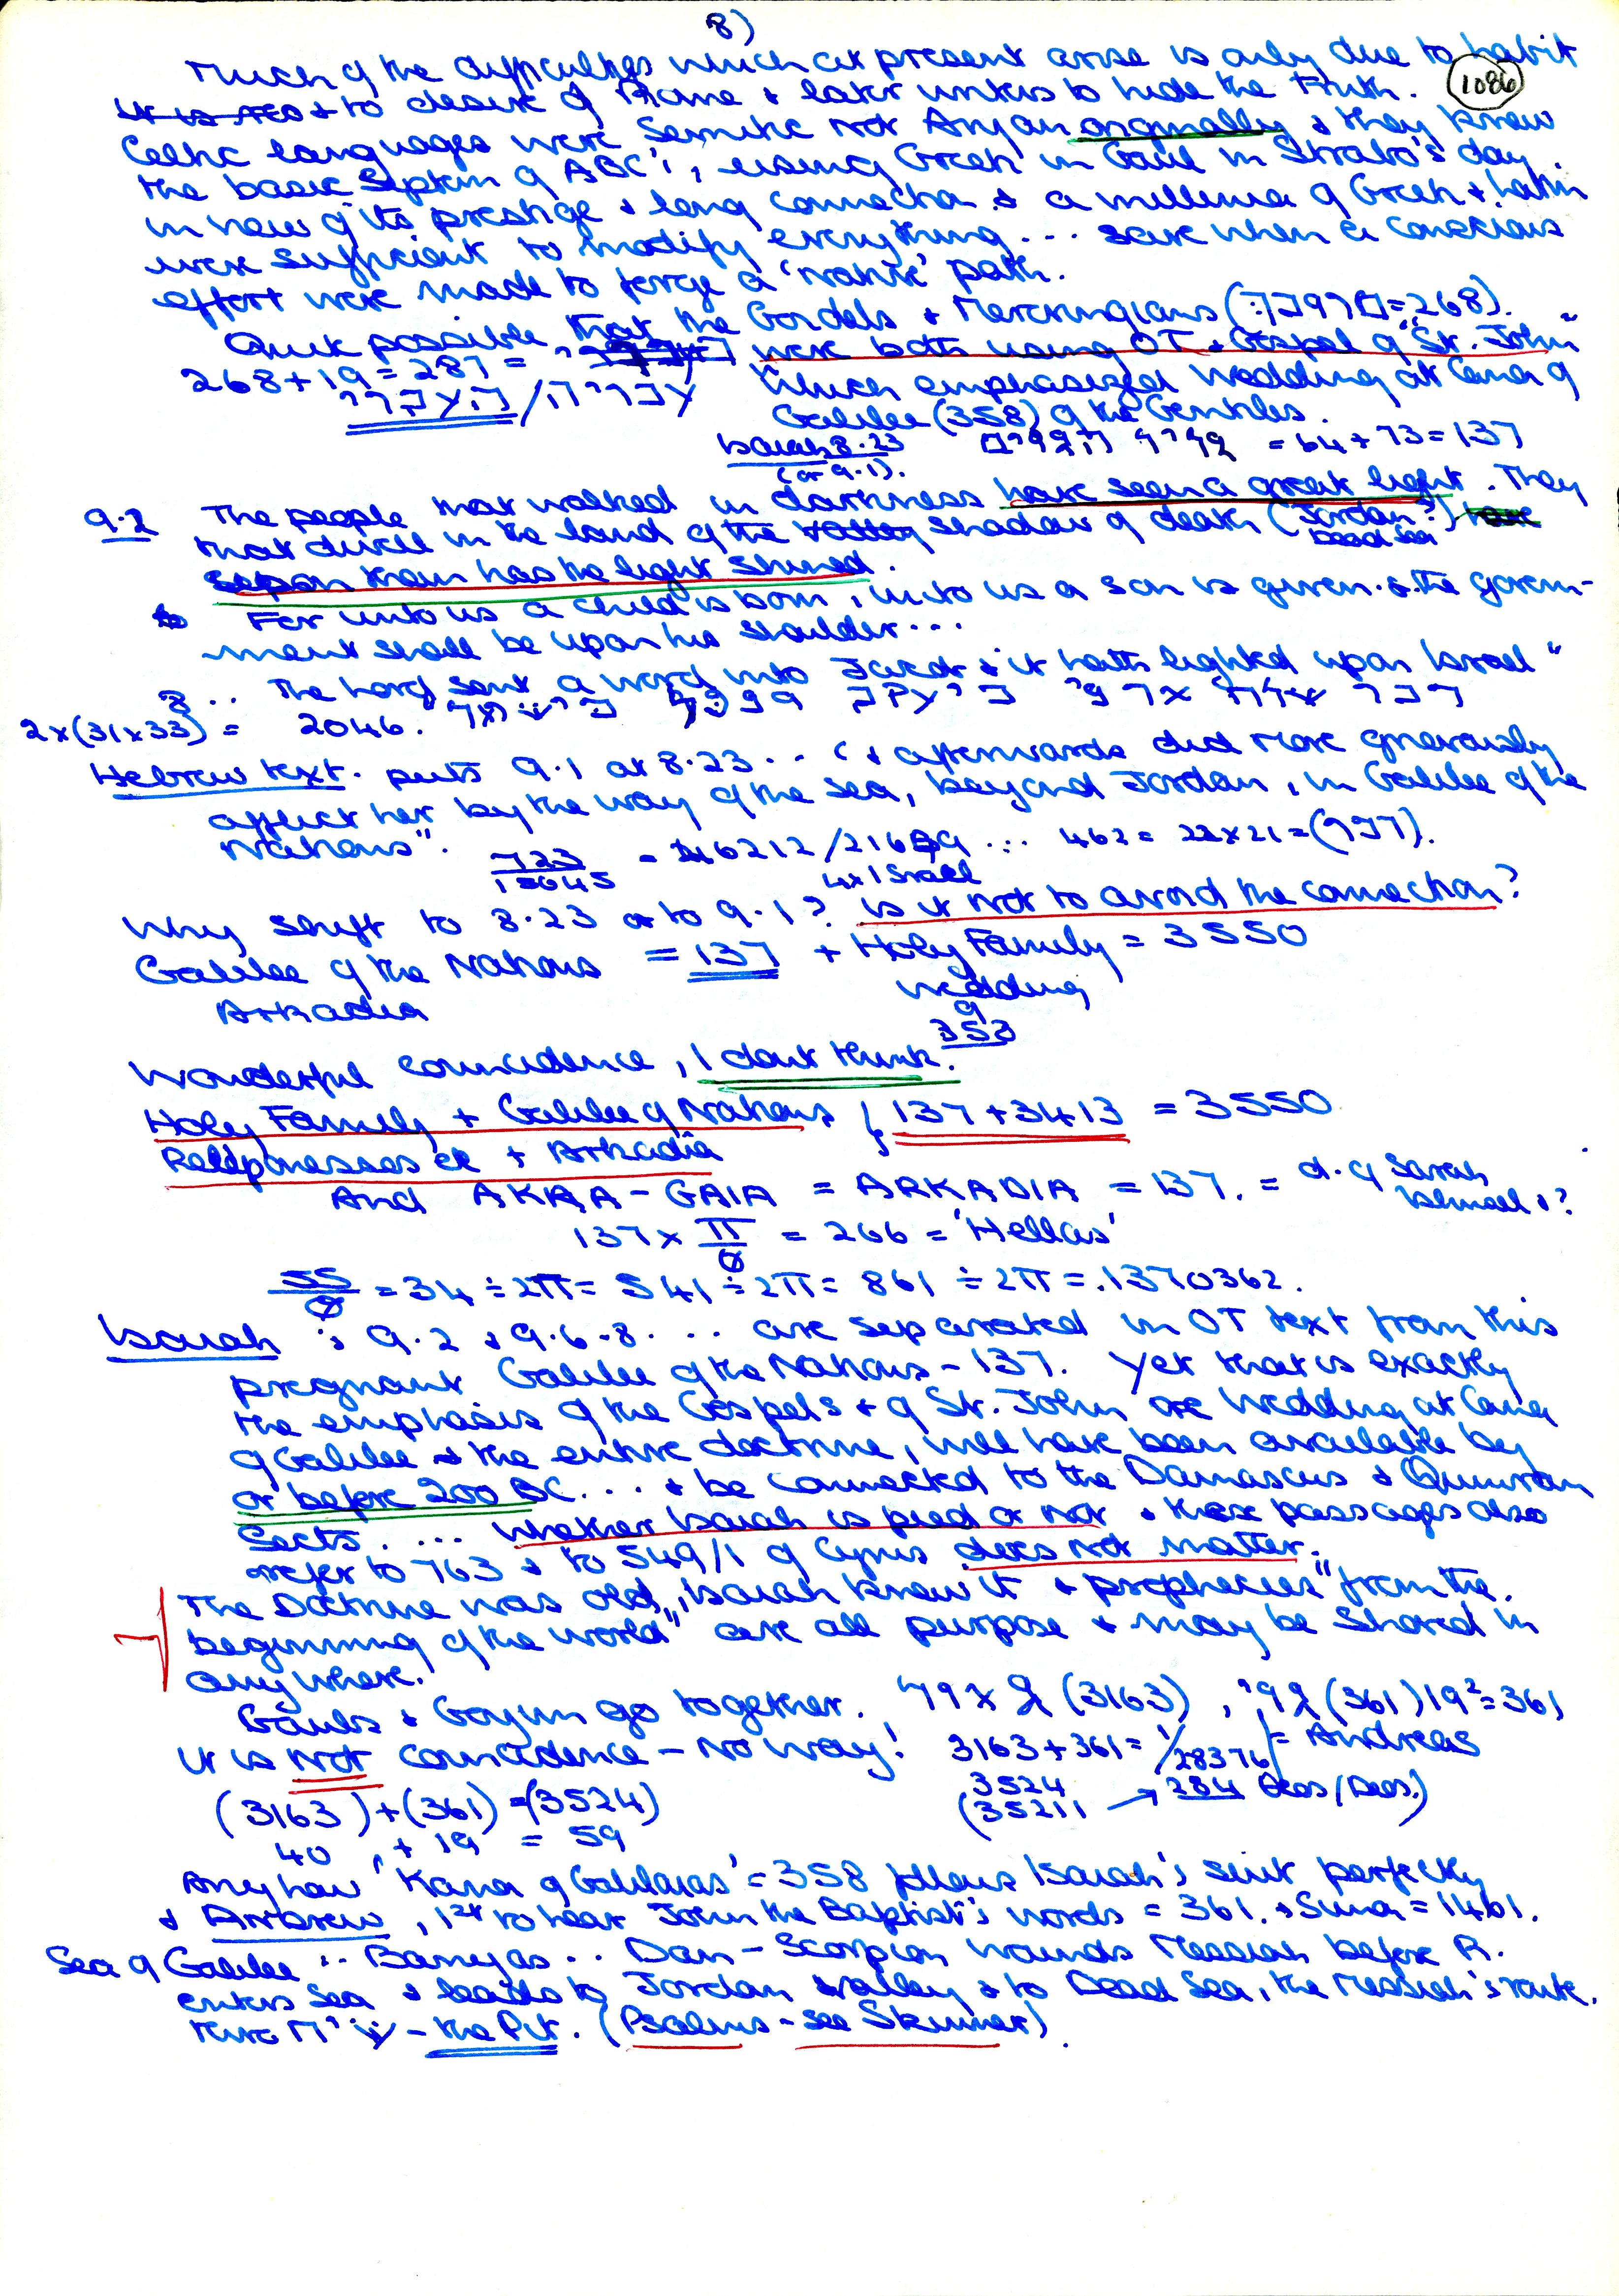 8)
1086
Much of the difficulties which at present arise is only due to habit
+ to desire of Rome + later writers to hide the Truth.
Celtic languages were Semitic not Aryan originally + they knew
the basic System of ABC's, using Greek in Gaul in Strabo's day.
in view of its prestige + long connection + a millennia of Greek + Latin
were sufficient to modify everything... save when a conscious
effort were made to forge a 'native' path.
Quite possible that the Goidels + Merovingians ( =268).
268+19=287= were both using OT + Gospel of "St. John"
which emphasized Wedding at Cana of
Galilee (358) of the Gentiles.
Isaiah 8.23 = 64+73=137
(or 9.1).
9.2 The people that walked in darkness have seen a great light. They
that dwell in the land of the shadow of death (Jordan?)
Dead Sea
upon them has the light shined.
For unto us a child is born, unto us a son is given + the govern-
ment shall be upon his shoulder...
8.. The Lord sent a word into Jacob + it hath lighted upon Israel"
2x(31x33) = 2046.
Hebrew text. puts 9.1 at 8.23... (+ afterwards did more grievously
afflict her by the way of the sea, beyond Jordan, in Galilee of the
Nations".
462 = 22x21 =
4x Israel
Why shift to 8.23 or to 9.1? Is it not to avoid the connection?
Galilee of the Nations = 137 + Holy Family = 3550
Arkadia
Wedding
9
353
Wonderful coincidence, I don't think.
Holy Family + Galilee of Nations 137+3413 = 3550
+ Arkadia
And AKRA-GAIA = ARKADIA = 137. = d. of Sarah
Ishmael + ?
137 x π/φ = 266 = 'Hellas'
55/φ = 34 ÷ 2π = 541 ÷ 2π = 861 ÷ 2π = .1370362.
Isaiah: 9.2 + 9.6-8.... are separated in OT text from this
pregnant Galilee of the Nations - 137. Yet that is exactly
the emphasis of the Gospels + of St. John are Wedding at Cana
of Galilee + the entire doctrine, will have been available by
or before 200 BC.... + be connected to the Damascus + Qumran
Sects.... Whether Isaiah is pied or not + these passages also
refer to 763 + to 549/1 of Cyrus does not matter.
The Doctrine was old, Isaiah knew it + prophecies "from the
beginning of the world" are all purpose + may be shared in
anywhere.
Gauls + Goyim go together. (3163), (361) 19²=361
It is Not coincidence - No way! 3163+361= 1/28376 = Andreas
3524
(3163)+(361)=(3524)
(35211 → 284 Theos/Deos.)
40 + 19 = 59
Anyhow 'Kana of Galilaias' = 358 follows Isaiah's suit perfectly
+ Andrew, 1st to hear John the Baptist's words = 361. + Sina = 1461.
Sea of Galilee... Banyas... Dan - Scorpion wounds Messiah before R.
enters Sea + leads to Jordan valley + to Dead Sea, the Messiah's route.
- the Pit. (Psalms - see Skinner).